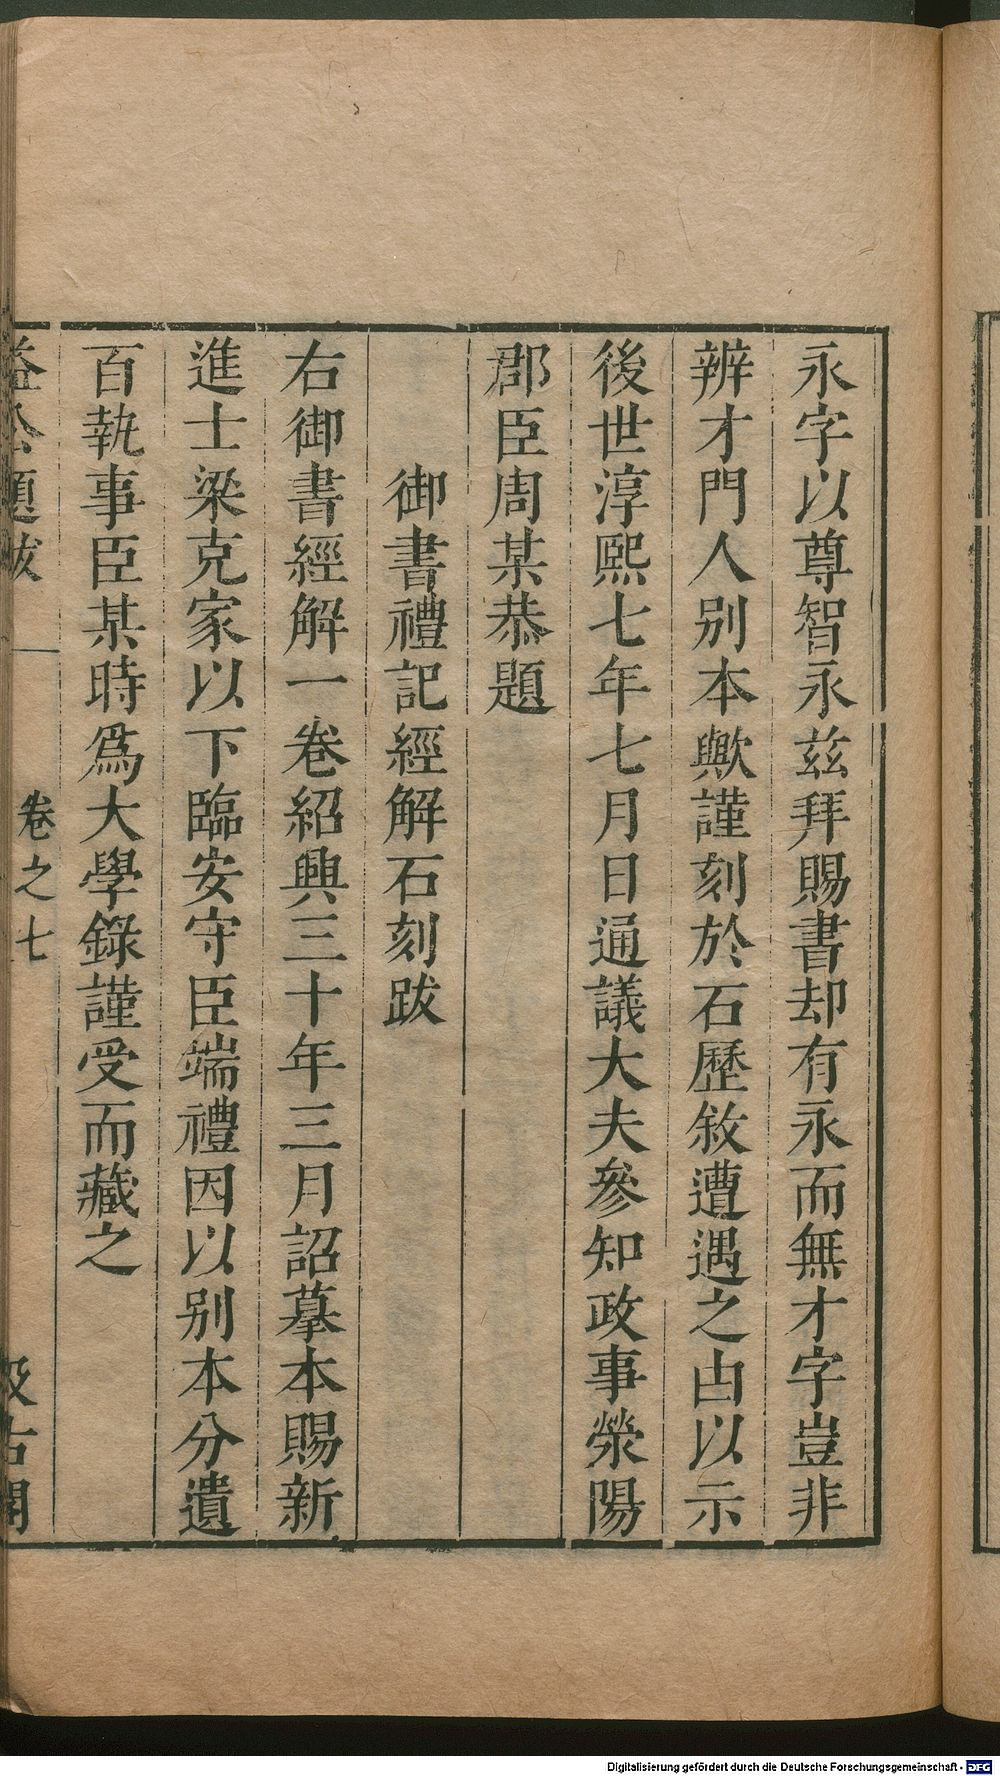 永字以尊智永茲拜賜書却有永而無才字豈非
辨才門人别本歟謹刻於石歷敘遭遇之由以示
後世淳熙七年七月日通議大夫參知政事滎陽
郡臣周某恭題
御書禮記經解石刻跋
右御書經解一卷紹興三十年三月詔摹本賜新
進士梁克家以下臨安守臣端禮因以别本分遺
百執事臣某時爲大學錄謹受而藏之
益公題跋 卷之七 汲古閣
Digitalisierung gefördert durch die Deutsche Forschungsgemeinschaft - DFG